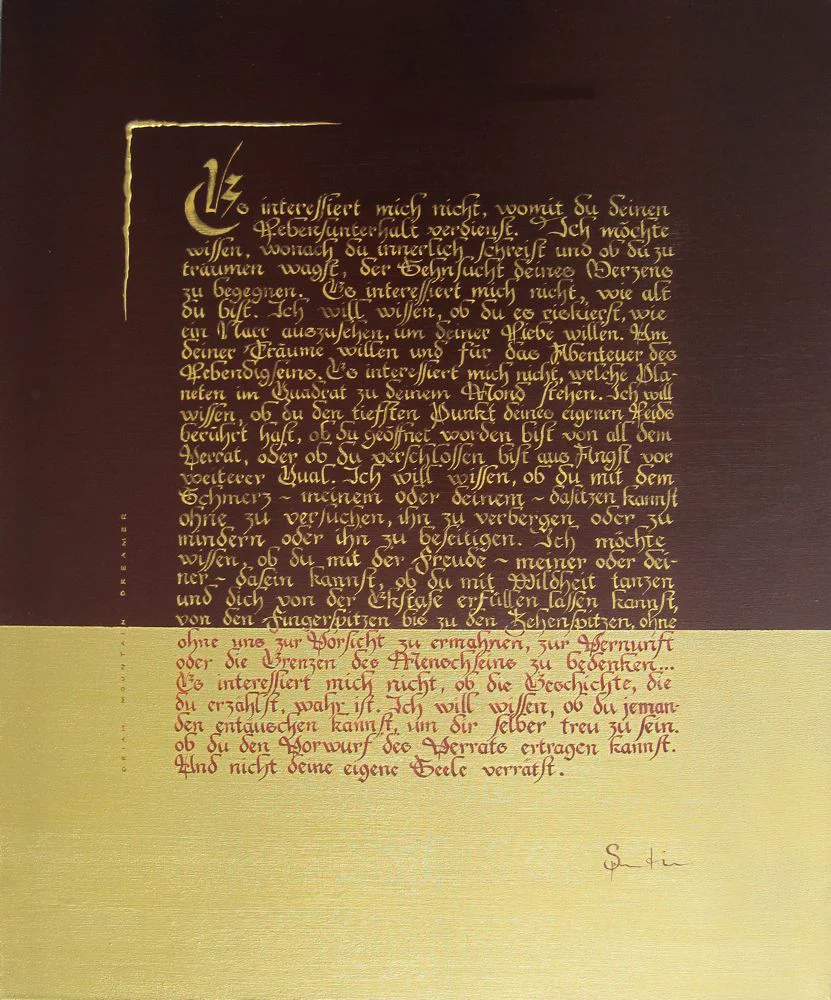 Es interessiert mich nicht, womit du deinen
Lebensunterhalt verdienst. Ich möchte
wissen, wonach du innerlich schreist und ob du zu
träumen wagst, der Sehnsucht deines Herzens
zu begegnen. Es interessiert mich nicht, wie alt
du bist. Ich will wissen, ob du es riskierst, wie
ein Narr auszusehen, um deiner Liebe willen. Um
deiner Träume willen und für das Abenteuer des
Lebendigseins. Es interessiert mich nicht, welche Pla-
neten im Quadrat zu deinem Mond stehen. Ich will
wissen, ob du den tiefsten Punkt deines eigenen Leids
berührt hast, ob du geöffnet worden bist von all dem
Verrat, oder ob du verschlossen bist aus Angst vor
weiterer Qual. Ich will wissen, ob du mit dem
Schmerz ~ meinem oder deinem ~ dasitzen kannst
ohne zu versuchen, ihn zu verbergen oder zu
mindern oder ihn zu beseitigen. Ich möchte
wissen, ob du mit der Freude ~ meiner oder dei-
ner ~ dasein kannst, ob du mit Wildheit tanzen
und dich von der Ekstase erfüllen lassen kannst,
von den Fingerspitzen bis zu den Zehenspitzen, ohne
ohne uns zur Vorsicht zu ermahnen, zur Vernunft
oder die Grenzen des Menschseins zu bedenken...
Es interessiert mich nicht, ob die Geschichte, die
du erzählst, wahr ist. Ich will wissen, ob du jeman-
den entäuschen kannst, um dir selber treu zu sein.
ob du den Vorwurf des Verrats ertragen kannst.
Und nicht deine eigene Seele verrätst.
ORIAH MOUNTAIN DREAMER